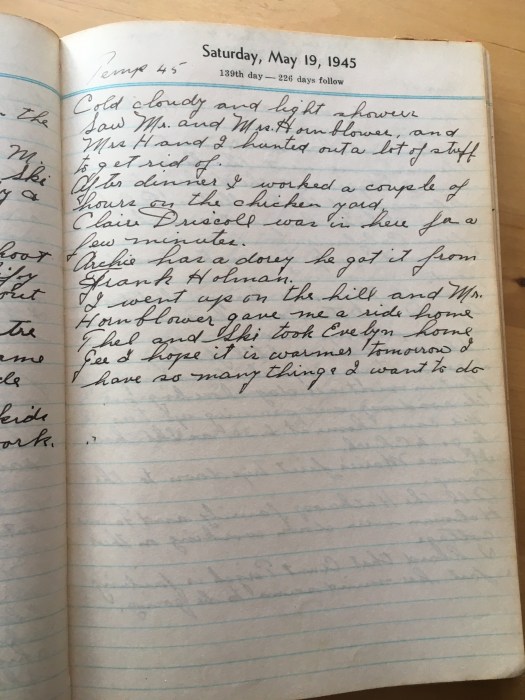 the
M
Ski
y a
hoot
ify
out
tre
ame
cle
kids
ork.
Saturday, May 19, 1945
139th day — 226 days follow
Temp 45
Cold cloudy and light showers
Saw Mr. and Mrs. Hornblower, and
Mrs H and I hunted out a lot of stuff
to get rid of.
After dinner I worked a couple of
hours on the chicken yard,
Claire Driscoll was in here for a
few minutes.
Archie has a dorey he got it from
Frank Holman.
I went up on the hill and Mr.
Hornblower gave me a ride home
Thel and Ski took Evelyn home
Gee I hope it is warmer tomorrow I
have so many things I want to do